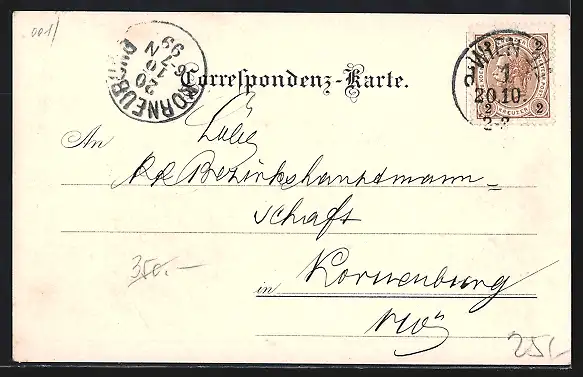 001/
KORNEUBURG
20
10
6-7 N
99
Correspondenz-Karte.
WIEN
1
20 10
2
2 2
KREUZER
An Löbl
kk Bezirkshauptmann-
schaft
in Korneuburg
NÖ
350.—
25/-